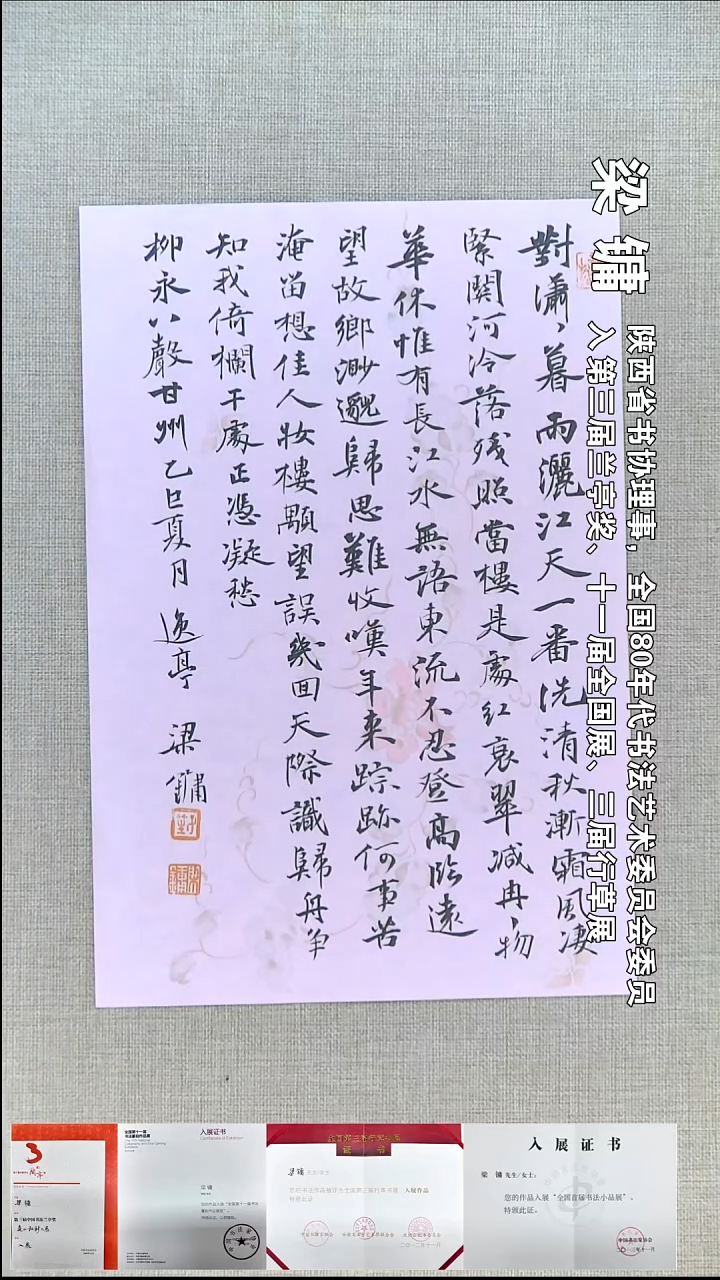 梁 镛
陕西省书协理事，全国80年代书法艺术委员会委员
入第三届兰亭奖、十一届全国展、三届行草展
對瀟、暮雨灑江天一番洗清秋漸霜風凄
緊關河冷落残照當樓是處紅衰翠减冉、物
華休惟有長江水無語東流不忍登高臨遠
望故鄉渺邈歸思難收嘆年来踪跡何事苦
淹留想佳人妝樓顒望誤幾回天際識歸舟争
知我倚欄干處正憑凝愁
柳永八聲甘州乙巳夏月 逸亭 梁鏞
3
梁镛
入展证书
梁镛
证 书
梁镛
入展作品
入展证书
梁 镛 先生/女士：
您的作品入展“全国首届书法小品展”。
特颁此证。
中国书法家协会